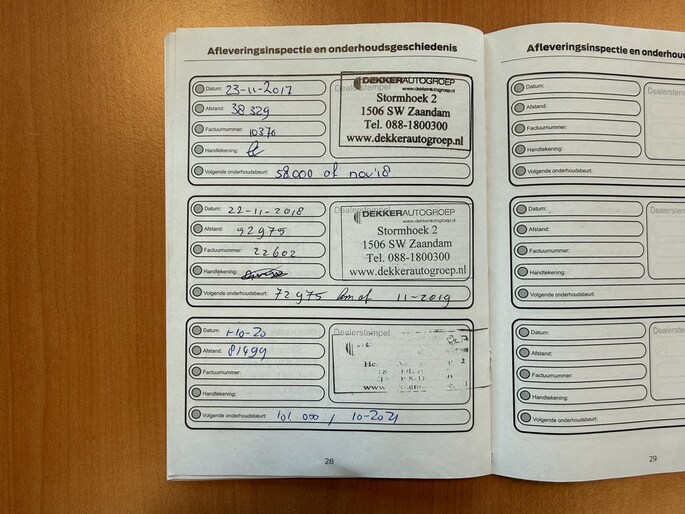 Afleveringsinspectie en onderhoudsgeschiedenis
Datum: 23-11-2017
Afstand: 38329
Factuurnummer: 10370
Handtekening:
Volgende onderhoudsbeurt: 58.000 of nov'18
Dealerstempel
DEKKERAUTOGROEP
www.dekkerautogroep.nl
Stormhoek 2
1506 SW Zaandam
Tel. 088-1800300
www.dekkerautogroep.nl
Datum: 22-11-2018
Afstand: 52975
Factuurnummer: 22602
Handtekening:
Volgende onderhoudsbeurt: 72975 km of 11-2019
Dealerstempel
DEKKERAUTOGROEP
www.dekkerautogroep.nl
Stormhoek 2
1506 SW Zaandam
Tel. 088-1800300
www.dekkerautogroep.nl
Datum: 1-10-20
Afstand: 81499
Factuurnummer:
Handtekening:
Volgende onderhoudsbeurt: 101.000 / 10-2021
Dealerstempel
28
Afleveringsinspectie en
Datum:
Afstand:
Factuurnummer:
Handtekening:
Volgende onderhoudsbeurt:
Datum:
Afstand:
Factuurnummer:
Handtekening:
Volgende onderhoudsbeurt:
Datum:
Afstand:
Factuurnummer:
Handtekening:
Volgende onderhoudsbeurt:
29